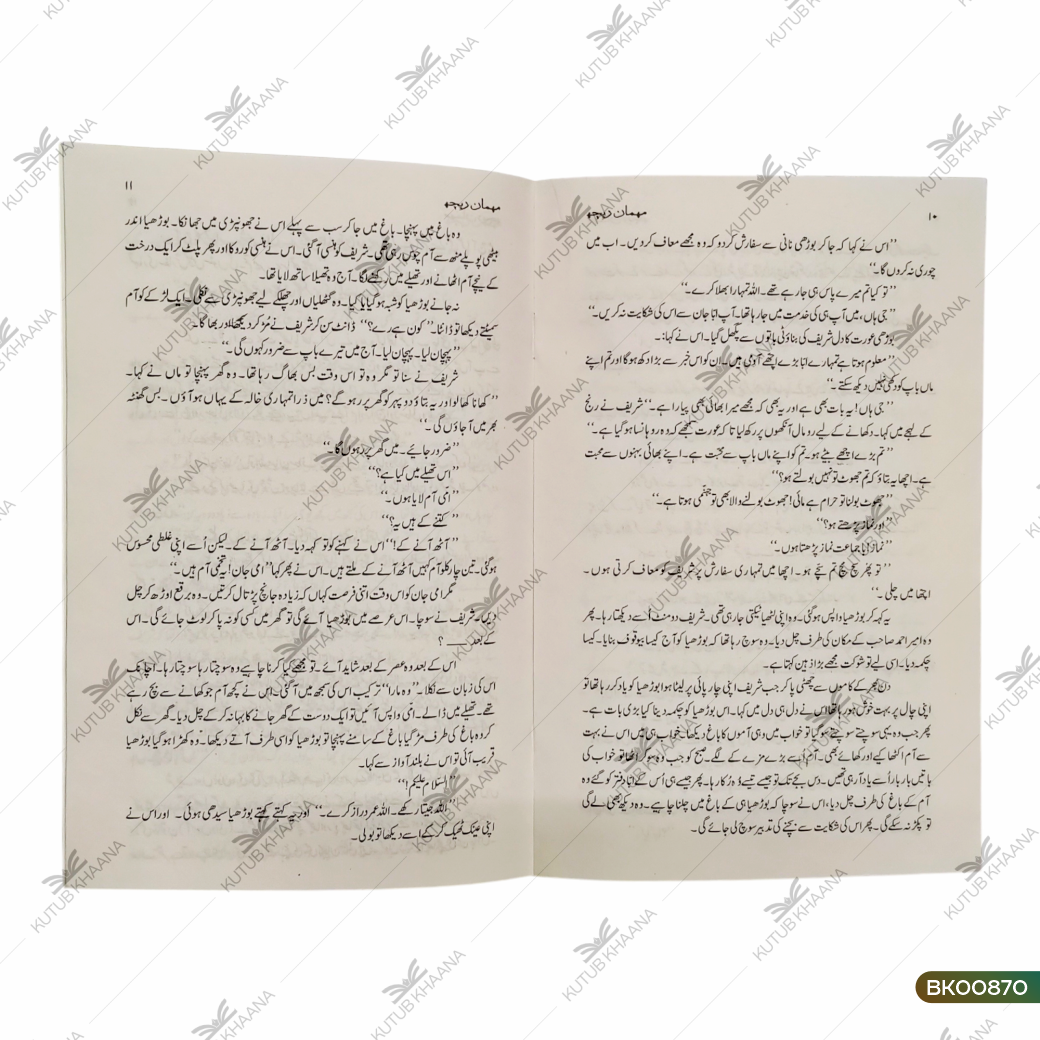 ۱۰
مہمان ریچھ
’’اس نے کہا کہ جا کر بوڑھی نانی سے سفارش کر دو کہ وہ مجھے معاف کر دیں۔ اب میں
چوری نہ کروں گا۔‘‘
’’تو کیا تم میرے پاس ہی جا رہے تھے۔ اللہ تمہارا بھلا کرے۔‘‘
’’جی ہاں، میں آپ ہی کی خدمت میں جا رہا تھا۔ آپ ابا جان سے اس کی شکایت نہ کریں۔‘‘
بوڑھی عورت کا دل شریف کی بناؤٹی باتوں سے پگھل گیا۔ اس نے کہا:۔
’’معلوم ہوتا ہے تمہارے ابا بڑے اچھے آدمی ہیں۔ ان کو اس خبر سے بڑا دکھ ہوگا اور تم اپنے
ماں باپ کو دکھی نہیں دیکھ سکتے۔‘‘
’’جی ہاں! یہ بات بھی ہے اور یہ بھی کہ مجھے میرا بھائی بھی پیارا ہے۔‘‘ شریف نے رنج
کے لہجے میں کہا۔ دکھانے کے لیے رومال آنکھوں پر رکھ لیا تا کہ عورت سمجھے کہ وہ روہانسا ہو گیا ہے۔‘‘
’’تم بڑے اچھے بیٹے ہو۔ تم کو اپنے ماں باپ سے محبت ہے۔ اپنے بھائی بہنوں سے محبت
ہے۔ اچھا یہ بتاؤ کہ تم جھوٹ تو نہیں بولتے ہو؟‘‘
’’جھوٹ بولنا تو حرام ہے مائی! جھوٹ بولنے والا بھی تو جہنّمی ہوتا ہے۔‘‘
’’اور نماز پڑھتے ہو؟‘‘
’’نماز! با جماعت نماز پڑھتا ہوں۔‘‘
’’تو پھر سچ مچ تم سچے ہو۔ اچھا میں تمہاری سفارش پر شریف کو معاف کرتی ہوں۔
اچھا میں چلی۔‘‘
یہ کہہ کر بوڑھیا واپس ہو گئی۔ وہ اپنی لٹھیا ٹیکتی جا رہی تھی۔ شریف دو منٹ اُسے دیکھتا رہا۔ پھر
وہ امیر احمد صاحب کے مکان کی طرف چل دیا۔ وہ سوچ رہا تھا کہ بوڑھیا کو آج کیسا بیوقوف بنایا۔ کیسا
چکمہ دیا۔ اسی لیے تو شوکت مجھے بڑا ذہین کہتا ہے۔
دن بھر کے کاموں سے چھٹی پا کر جب شریف اپنی چارپائی پر لیٹا ہوا بوڑھیا کو یاد کر رہا تھا تو
اپنی چال پر بہت خوش ہو رہا تھا اس نے دل ہی دل میں کہا۔ اس بوڑھیا کو چکمہ دینا کیا بڑی بات ہے۔
پھر جب وہ یہی سوچتے سوچتے سو گیا تو خواب میں وہی آموں کا باغ دیکھا۔ خواب ہی میں اس نے بہت
سے آم اکٹھا کیے اور کھائے بھی۔ آم اُسے بڑے مزے کے لگے۔ صبح کو جب وہ سو کر اٹھا تو خواب کی
باتیں بار بار اُسے یاد آ رہی تھیں۔ دس بجے تک تو جیسے تیسے وہ رکا رہا۔ پھر جیسے ہی اُس کے ابا دفتر کو گئے وہ
آم کے باغ کی طرف چل دیا، اس نے سوچا کہ بوڑھیا ہی کے باغ میں چلنا چاہیے۔ وہ دیکھ بھی لے گی
تو پکڑ نہ سکے گی۔ پھر اس کی شکایت سے بچنے کی تدبیر سوچ لی جائے گی۔
۱۱
مہمان ریچھ
وہ باغ میں پہنچا۔ باغ میں جا کر سب سے پہلے اس نے جھونپڑی میں جھانکا۔ بوڑھیا اندر
بیٹھی پوپلے منھ سے آم چوس رہی تھی۔ شریف کو ہنسی آ گئی۔ اس نے ہنسی کو روکا اور پھر پلٹ کر ایک درخت
کے نیچے آم اٹھانے اور تھیلے میں رکھنے لگا۔ آج وہ تھیلا ساتھ لایا تھا۔
نہ جانے بوڑھیا کو شبہ ہو گیا یا کیا۔ وہ گٹھلیاں اور چھلکے لیے جھونپڑی سے نکلی۔ ایک لڑکے کو آم
سمیٹتے دیکھا تو ڈانٹا۔ ’’کون ہے رے؟‘‘ ڈانٹ سن کر شریف نے مُڑ کر دیکھا اور بھاگا۔
’’پہچان لیا۔ پہچان لیا۔ آج میں تیرے باپ سے ضرور کہوں گی۔‘‘
شریف نے سنا تو مگر وہ تو اس وقت بس بھاگ رہا تھا۔ وہ گھر پہنچا تو ماں نے کہا۔
’’کھانا کھالو اور یہ بتاؤ دوپہر کو گھر پر رہو گے؟ میں ذرا تمہاری خالہ کے یہاں ہو آؤں۔ بس گھنٹہ
بھر میں آ جاؤں گی۔‘‘
’’ضرور جائیے۔ میں گھر پر رہوں گا۔‘‘
’’اس تھیلے میں کیا ہے؟‘‘
’’امّی آم لایا ہوں۔‘‘
’’کتنے کے ہیں یہ؟‘‘
’’آٹھ آنے کے!‘‘ اس نے کہنے کو تو کہہ دیا۔ آٹھ آنے کے۔ لیکن اُسے اپنی غلطی محسوس
ہو گئی۔ تین چار کلو آم کہیں آٹھ آنے کے ملتے ہیں۔ اس نے پھر کہا ’’امی جان! یہ تخمی آم ہیں۔‘‘
مگر امی جان کو اس وقت اتنی فرصت کہاں کہ زیادہ جانچ پڑتال کرتیں۔ وہ برقع اوڑھ کر چل
دیں۔ شریف نے سوچا۔ اس عرصے میں بوڑھیا آئے گی تو گھر میں کسی کو نہ پا کر لوٹ جائے گی۔ اس
کے بعد ـــــ ؟
اس کے بعد وہ عصر کے بعد شاید آئے۔ تو مجھے کیا کرنا چاہیے وہ سوچتا رہا سوچتا رہا۔ اچانک
اس کی زبان سے نکلا۔ ’’وہ مارا‘‘ ترکیب اس کی سمجھ میں آ گئی۔ اس نے کچھ آم جو کھانے سے بچ رہے
تھے۔ تھیلے میں ڈالے۔ امّی واپس آئیں تو ایک دوست کے گھر جانے کا بہانہ کر کے چل دیا۔ گھر سے نکل
کر وہ باغ کی طرف مڑ گیا باغ کے سامنے پہنچا تو بوڑھیا کو اسی طرف آتے دیکھا۔ وہ کھڑا ہو گیا بوڑھیا
قریب آئی تو اس نے بلند آواز سے کہا۔
’’السّلام علیکم!‘‘
’’اللہ جیتا رکھے۔ اللہ عمر دراز کرے۔‘‘ اور یہ کہتے کہتے بوڑھیا سیدھی ہوئی۔ اور اس نے
اپنی عینک ٹھیک کر کے اسے دیکھا تو بولی۔
KUTUB KHAANA
BK00870